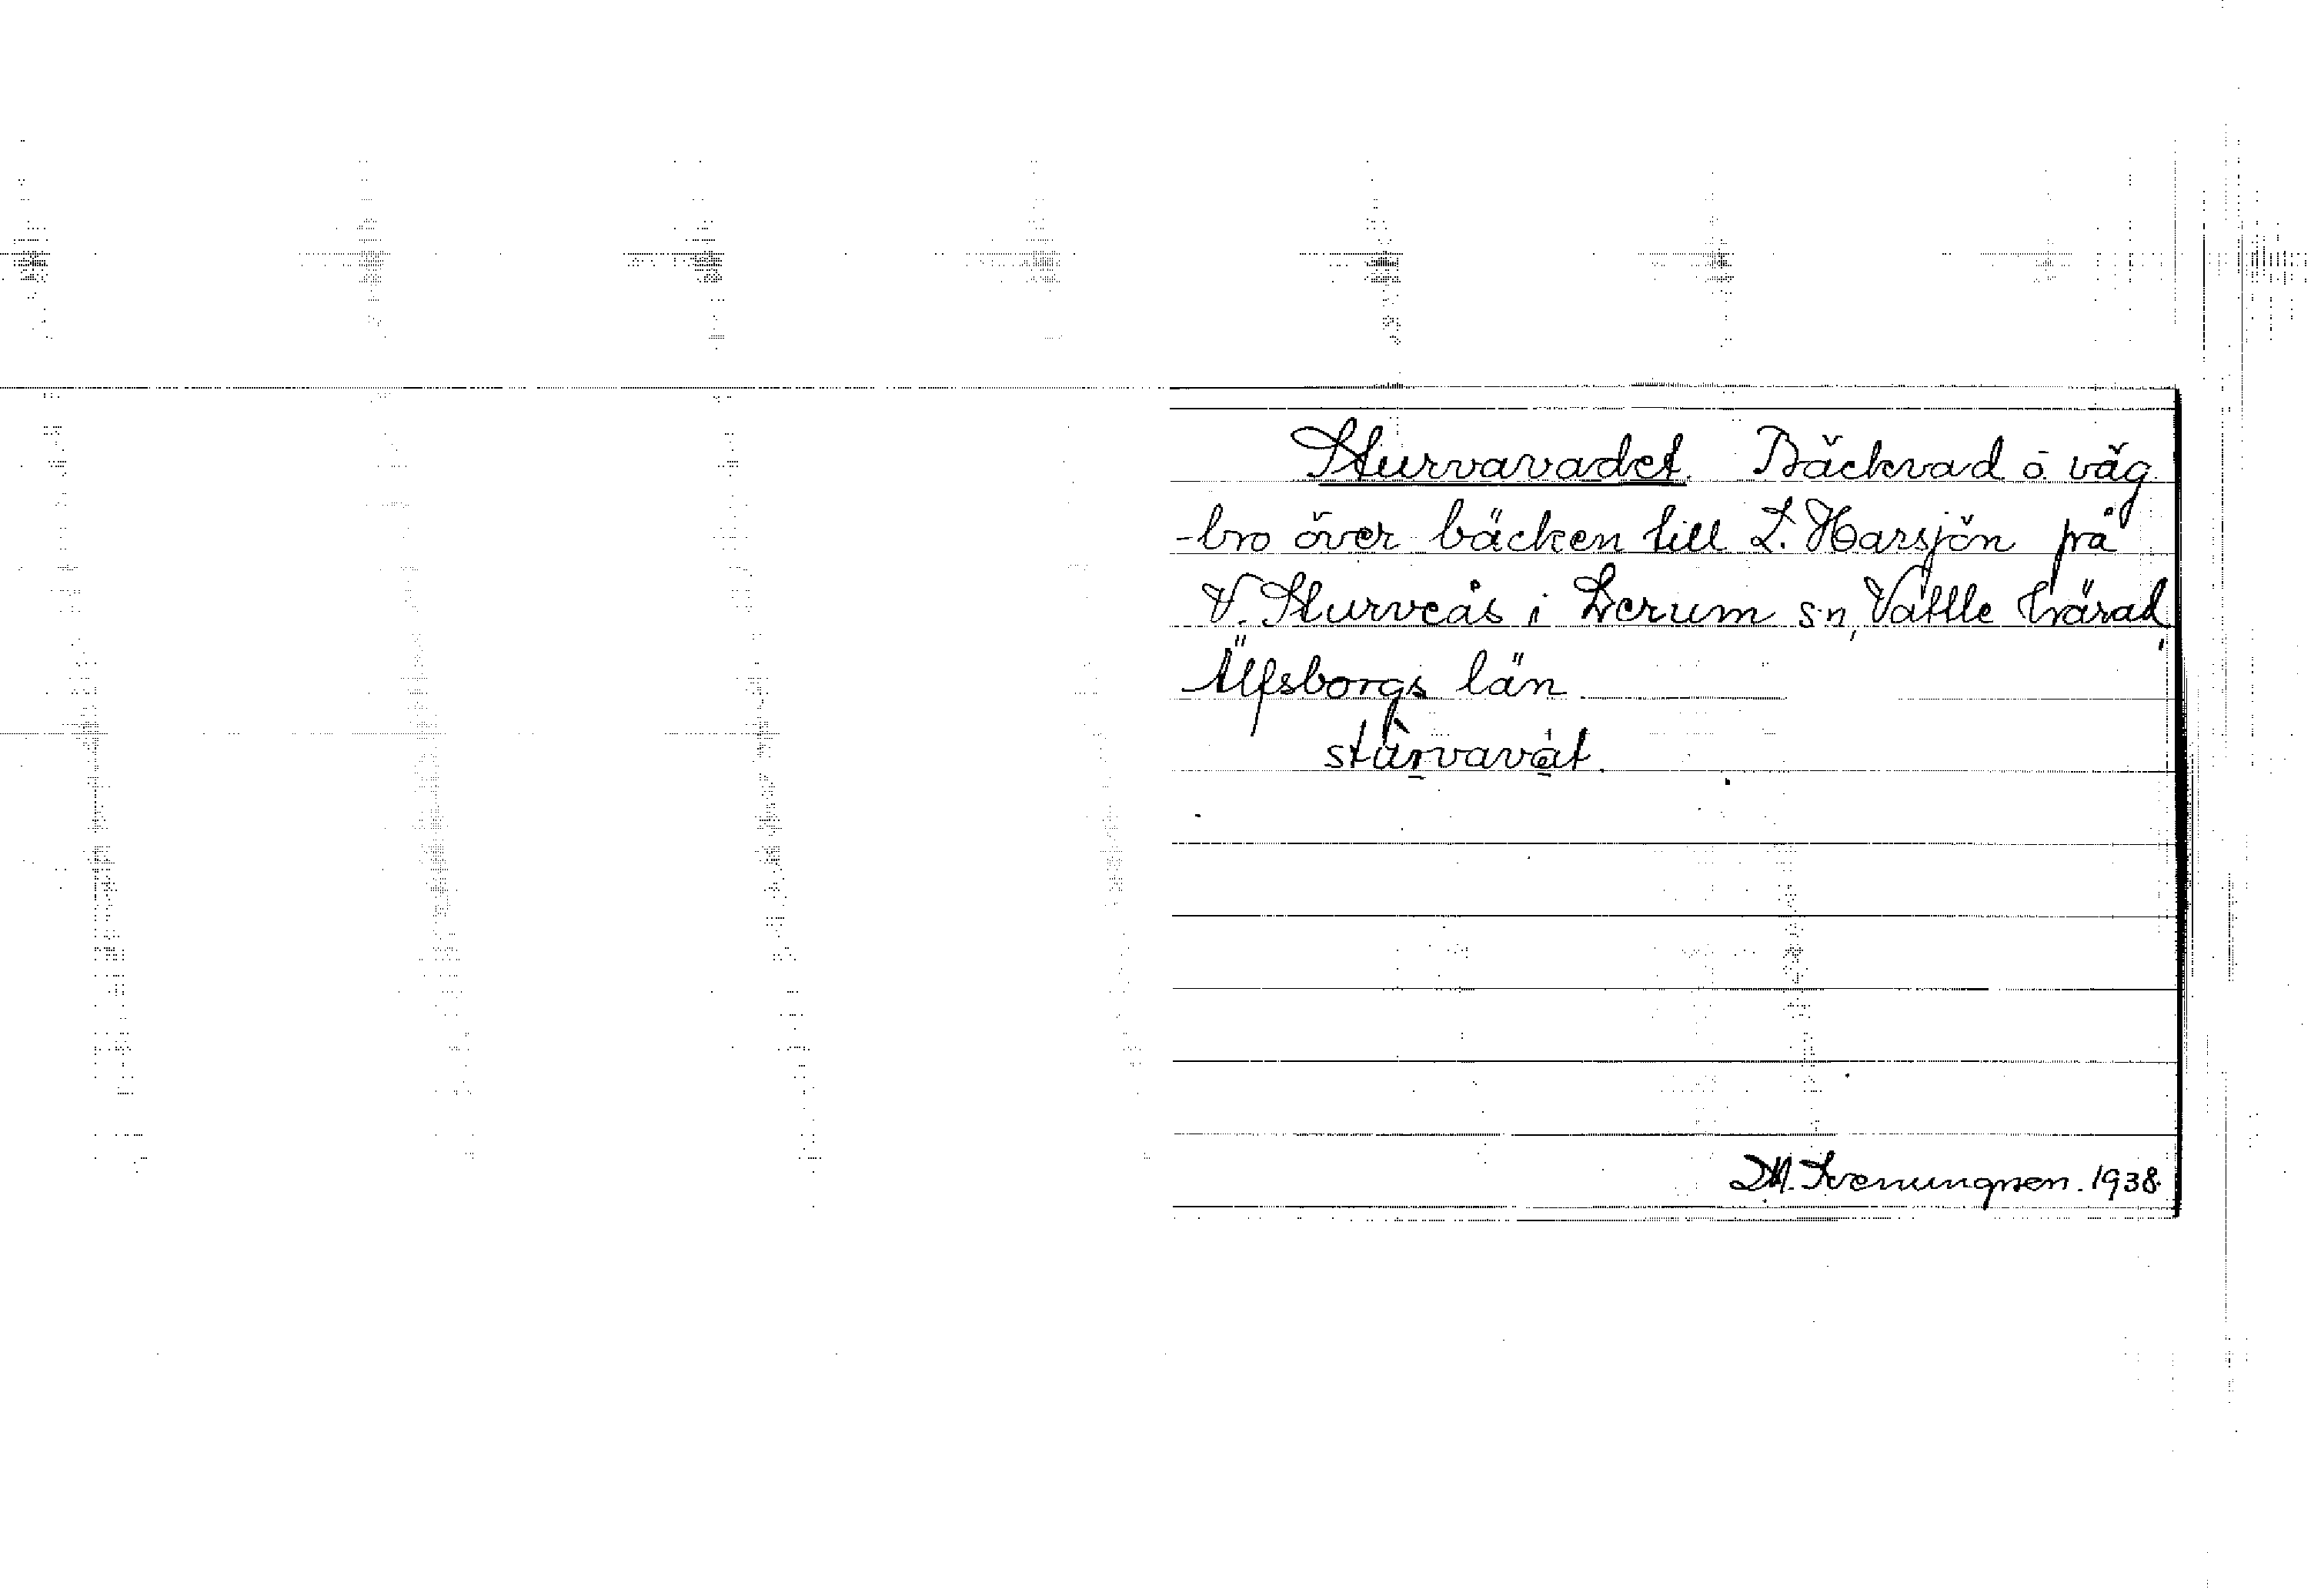 Sturvavadet. Bäckvad o. väg
-bro över bäcken till L. Harsjön på
V. Sturveås i Lerum sn, Vättle härad,
Älfsborgs län
stùrvavat.
D.A. Kvenungsen. 1938.